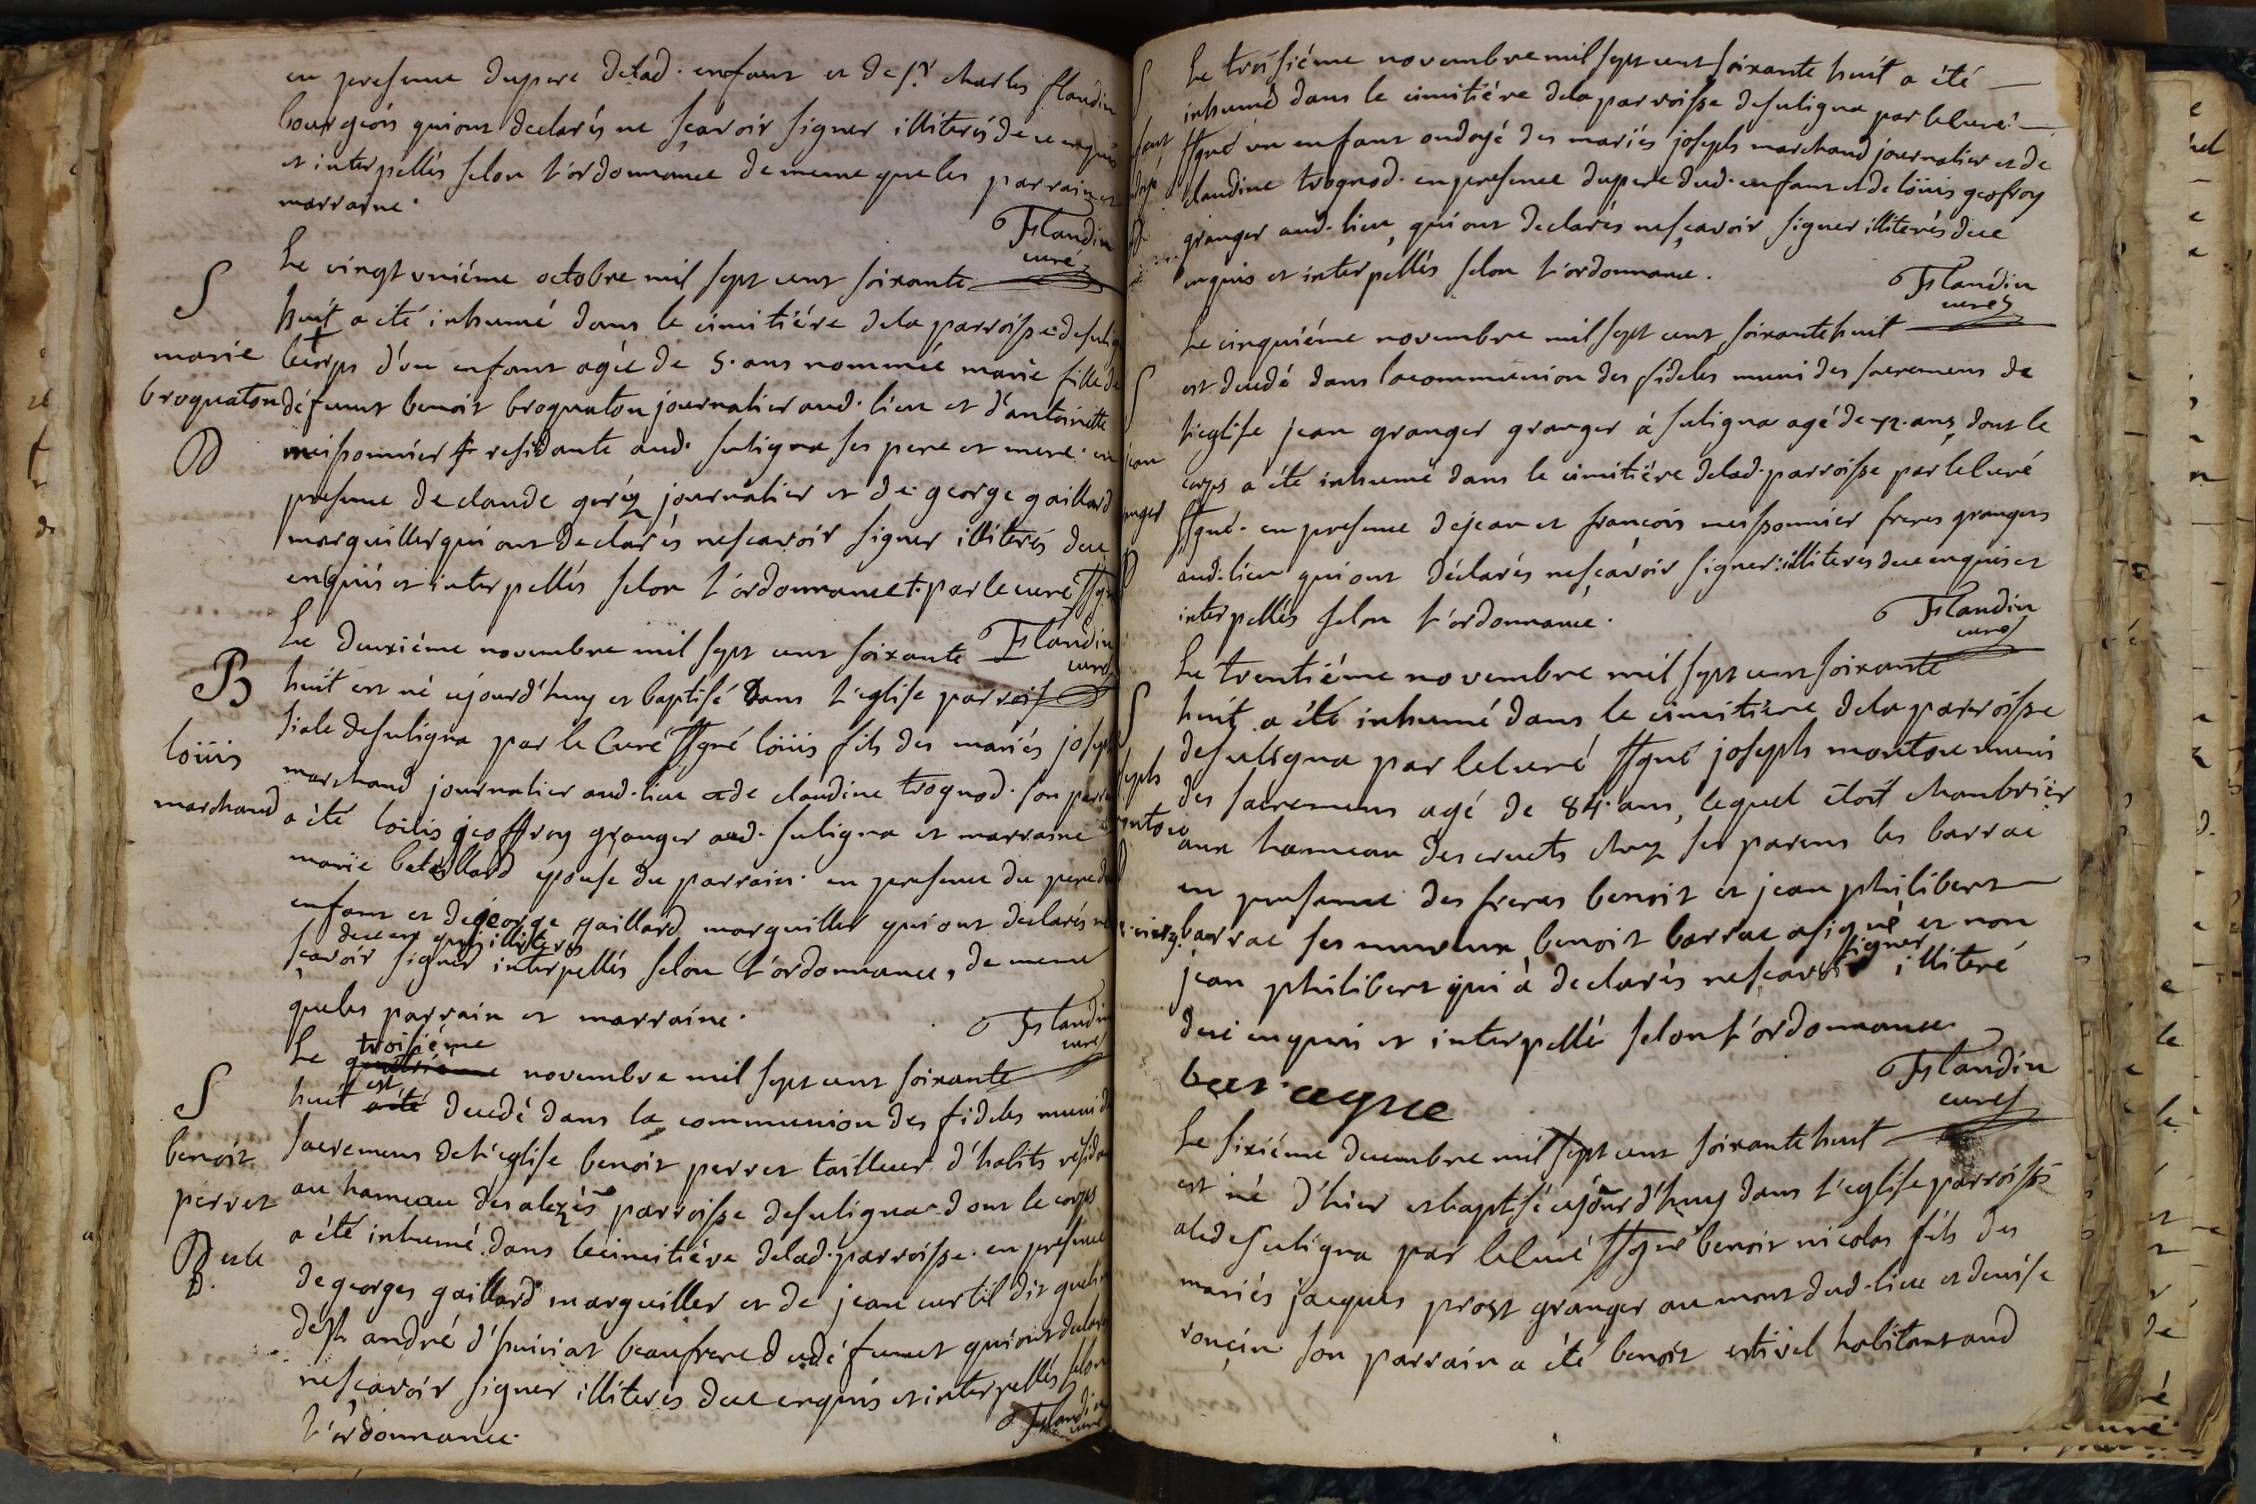 en presence du pere de lad. enfant et de sr. charles flandin
bourgeois qui ont declarés ne sçavoir signer illiterés de ce enquis
et interpellés selon l'ordonnance de meme que les parrain et
marraine.
Flandin
curé
Le vingt unième octobre mil sept cent soixante
S
huit a été inhumé dans le cimitiére de la parroisse de sulig
marie
le corps d'un enfant agée de 5. ans nommée marie fille de
broquaton
défunt benoit broquaton journalier aud. lieu et d'antoinette
meissonnier residante aud. suligna ses pere et mere. en
presence de claude goréz journalier et de george gaillard
marguiller qui ont declarés ne sçavoir signer illiterés de ce
enquis et interpellés selon l'ordonnance +. par le curé ssgné
Flandin
curé
Le deuxiéme novembre mil sept cent soixante
B
huit est né ajourd'huy et baptisé dans l'eglise parrois
loüis
siale de suligna par le Curé ssgné loüis fils des mariés joseph
marchand
marchand journalier aud. lieu et de claudine trognod. son parrain
a été loüis geoffroy granger aud. suligna et marraine
marie betaillard epouse du parrain. en presence du pere de
enfant et de george gaillard marguiller qui ont declarés ne
de ce enquis illiterés
sçavoir signer interpellés selon l'ordonnance, de meme
que les parrain et marraine.
Flandin
curé
troisiéme
Le quatriéme novembre mil sept cent soixante
S
est
huit a été decedé dans la communion des fideles muni des
benoit
sacremens de l'eglise benoit perret tailleur d'habits residant
perret
au hameau des alezès parroisse de suligna dont le corps
a été inhumé dans le cimitiére de lad. parroisse. en presence
de georges gaillard marguiller et de jean curtil dit
de st. andré d'huiriat beaufrere du défunt qui ont declarés
ne sçavoir signer illiterés de ce enquis et interpellés selon
l'ordonnance.
Flandin
curé
Le troisiéme novembre mil sept cent soixante huit a été
S
inhumé dans le cimitiére de la parroisse de suligna par le curé
ssgné un enfant ondoyé des mariés joseph marchand journalier et de
claudine trognod. en presence du pere dud. enfant et de loüis geofroy
granger aud. lieu, qui ont declarés ne sçavoir signer illiterés de ce
enquis et interpellés selon l'ordonnance.
Flandin
curé
Le cinquiéme novembre mil sept cent soixante huit
S
est decedé dans la communion des fideles muni des sacremens de
l'eglise jean granger granger à suligna agé de 72. ans, dont le
jean
corps a été inhumé dans le cimitiére de lad. parroisse par le curé
anger
ssgné. en presence de jean et françois meissonnier freres grangers
aud. lieu qui ont déclarés ne sçavoir signer illiterés de ce enquis et
interpellés selon l'ordonnance.
Flandin
curé
Le trentiéme novembre mil sept cent soixante
S
huit a été inhumé dans le cimitiere de la parroisse
de suligna par le curé ssgné joseph montou muni
seph
des sacremens agé de 84. ans, lequel étoit chambrier
ontou
aux hameau des cruets chez ses parens les barrac
en presence des freres benoit et jean philibert
barrac ses neveux benoit barrac a signé et non
signer
jean philibert qui à declarés ne sçavoir illiteré
de ce enquis et interpellé selon l'ordonnance
Flandin
curé
Le sixiéme decembre mil sept cent soixante huit
est né d'hier et baptisé ajourd'huy dans l'eglise parroissi
ale de suligna par le curé ssgné benoit nicolas fils des
mariés jacques prost granger au mont dud. lieu et denise
ronçin. son parrain a été benoit estivel habitant aud